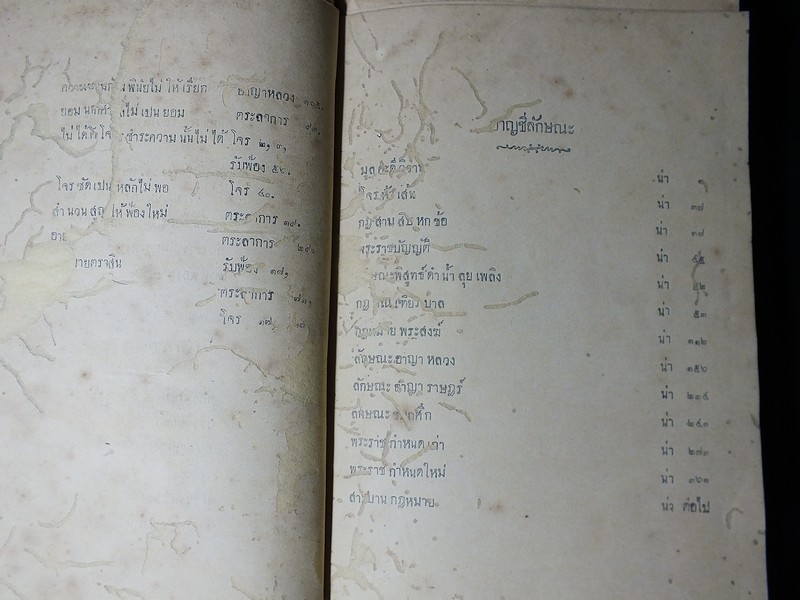 พินัยไม่ ให้ เรียก อาญาหลวง
ยอม ไม่ เปน ยอม ตระลาการ ๙๓,
ไม่ ได้ ชำระความ นั้น ไม่ ได้ โจร ๒๑, ๓,
รับฟ้อง ๕๒,
โจร ซัด เปน หลัก ไม่ พอ โจร ๔๐,
สำนวน ให้ ฟ้อง ใหม่ ตระลาการ ๑๙,
ตระลาการ ๒๙,
ขายตราสิน รับฟ้อง ๓๗,
ตระลาการ
โจร ๑๗,
บาญชีลักษณะ
มูล คดี วิวาท น่า ๑
โจร ห้า เส้น น่า ๓๗
กฎ สาม สิบ หก ข้อ น่า ๓๗
พระราชบัญญัติ น่า ๔๕
ลักษณะพิสูทธ์ ดำ น้ำ ลุย เพลิง น่า
กฎ มณเฑียร บาล น่า ๕๓
กฎหมาย พระสงฆ์ น่า ๑๑๒
ลักษณะ อาญา หลวง น่า ๑๕๖
ลักษณะ อาญา ราษฎร์ น่า
ลักษณะ น่า
พระราช กำหนด เก่า น่า ๒๗๓
พระราช กำหนด ใหม่ น่า ๓๖๑
สารบาน กฎหมาย น่า ต่อไป